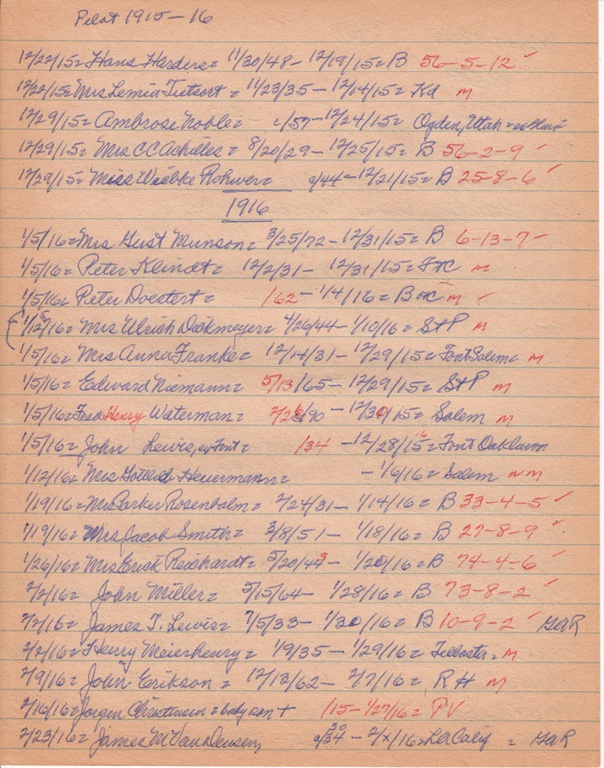 Pilot 1915-16
12/22/15 = Hans Harders = 11/30/48 - 12/19/15 = B 56-5-12 ✓
12/22/15 = Mrs Lemia Tietsort = 11/23/35 - 12/14/15 = Kd m
12/29/15 = Ambrose Noble = c/57 - 12/24/15 = Ogden, Utah =
12/29/15 = Mrs CC Achilles = 8/20/29 - 12/25/15 = B 56-2-9 ✓
12/29/15 = Miss Wiebke Rohwer = c/44 - 12/21/15 = B 25-8-6 ✓
1916
1/5/16 = Mrs Gust Munson = 3/25/72 - 12/31/15 = B 6-13-7 ✓
1/5/16 = Peter Klindt = 12/2/31 - 12/31/15 = m
1/5/16 = Peter Doestert = 1/62 - 1/4/16 = m ✓
1/12/16 = Mrs Ulrich Dickmeyer = 4/26/44 - 1/10/16 = St P m
1/5/16 = Mrs Anna Franke = 12/14/31 - 12/29/15 = Font Salem m
1/5/16 = Edward Niemann = 5/13/65 - 12/29/15 = St P m
1/5/16 = Fred Henry Waterman = /90 - 12/30/15 = Salem m
1/5/16 = John Lewis, ex Font = /34 - 12/28/15 = Font Oaklawn
1/12/16 = Mrs Gotlieb Heuermann = - 1/6/16 = Salem nm
1/19/16 = Mrs Parker Rosenbalm = 2/24/31 - 1/14/16 = B 33-4-5 ✓
1/19/16 = Mrs Jacob Smith = 3/8/51 - 1/18/16 = B 27-8-9 ✓
1/26/16 = Mrs Erick Reichardt = 5/20/43 - 1/20/16 = B 74-4-6 ✓
2/2/16 = John Miller = 5/15/64 - 1/28/16 = B 73-8-2 ✓
2/2/16 = James T. Lewis = 7/5/33 - 1/30/16 = B 10-9-2 ✓ GaR
2/2/16 = Henry Meierhenry = 1/9/35 - 1/29/16 = m
2/9/16 = John Erikson = 12/13/62 - 2/7/16 = R H m
2/16/16 = Jorgen Christensen = body son + /15 - 1/27/16 = PV
2/23/16 = James M Van Deusen, 20 c/34 - 2/x/16 = LA Calif = GaR